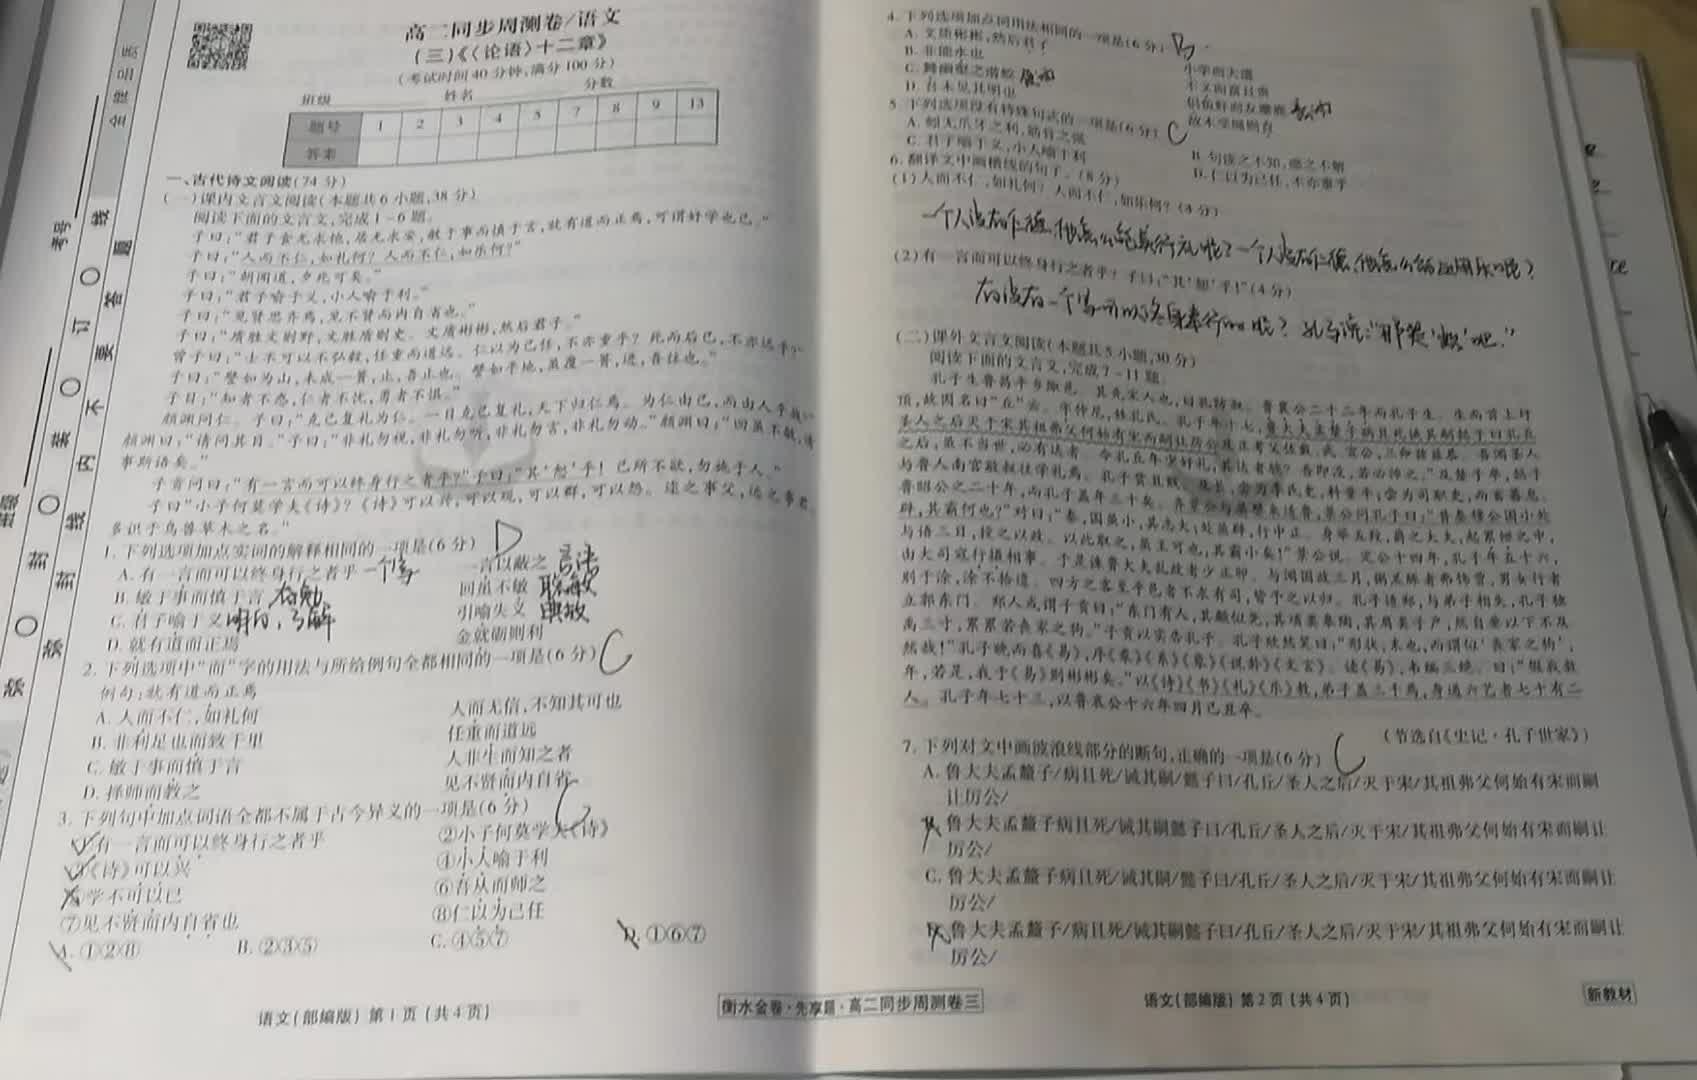 高二同步周测卷/语文
(三)《〈论语〉十二章》
(考试时间40分钟,满分100分)
班级 姓名 分数
题号 1 2 3 4 5 7 8 9 13
答案
一、古代诗文阅读(74分)
(一)课内文言文阅读(本题共6小题,38分)
阅读下面的文言文,完成1~6题。
子曰:“君子食无求饱,居无求安,敏于事而慎于言,就有道而正焉,可谓好学也已。”
子曰:“人而不仁,如礼何?人而不仁,如乐何?”
子曰:“朝闻道,夕死可矣。”
子曰:“君子喻于义,小人喻于利。”
子曰:“见贤思齐焉,见不贤而内自省也。”
子曰:“质胜文则野,文胜质则史。文质彬彬,然后君子。”
曾子曰:“士不可以不弘毅,任重而道远。仁以为己任,不亦重乎?死而后已,不亦远乎
子曰:“譬如为山,未成一篑,止,吾止也。譬如平地,虽覆一篑,进,吾往也。”
子曰:“知者不惑,仁者不忧,勇者不惧。”
颜渊问仁。子曰:“克己复礼为仁。一日克己复礼,天下归仁焉。为仁由己,而由人乎哉
颜渊曰:“请问其目。”子曰:“非礼勿视,非礼勿听,非礼勿言,非礼勿动。”颜渊曰:“回虽不敏,请
事斯语矣。”
子贡问曰:“有一言而可以终身行之者乎?”子曰:“其‘恕’乎!己所不欲,勿施于人。”
子曰“小子何莫学夫《诗》?《诗》可以兴,可以观,可以群,可以怨。迩之事父,远之事君
多识于鸟兽草木之名。”
1. 下列选项加点实词的解释相同的一项是(6分) D
A. 有一言而可以终身行之者乎 一个字 一言以蔽之
B. 敏于事而慎于言 回虽不敏 聪敏
C. 君子喻于义 明白,了解 引喻失义
D. 就有道而正焉 金就砺则利
2. 下列选项中“而”字的用法与所给例句全都相同的一项是(6分) C
例句:就有道而正焉
A. 人而不仁,如礼何 人而无信,不知其可也
B. 非利足也而致千里 任重而道远
C. 敏于事而慎于言 人非生而知之者
D. 择师而教之 见不贤而内自省
3. 下列句中加点词语全都不属于古今异义的一项是(6分) C
①有一言而可以终身行之者乎 ②小子何莫学夫《诗》
③《诗》可以兴 ④小人喻于利
⑤学不可以已 ⑥吾从而师之
⑦见不贤而内自省也 ⑧仁以为己任
A. ①②⑧ B. ②③⑤ C. ④⑤⑦ D. ①⑥⑦
语文(部编版) 第1页(共4页)
衡水金卷·先享题·高二同步周测卷三
4. 下列选项加点词用法相同的一项是(6分) B
A. 文质彬彬,然后君子 小学而大遗
B. 非能水也 不文而富且贵
C. 舞幽壑之潜蛟 侣鱼虾而友麋鹿
D. 吾未见其明也 故木受绳则直
5. 下列选项没有特殊句式的一项是(6分) C
A. 蚓无爪牙之利,筋骨之强 B. 句读之不知,惑之不解
C. 君子喻于义,小人喻于利 D. 仁以为己任,不亦重乎
6. 翻译文中画横线的句子。(8分)
(1)人而不仁,如礼何?人而不仁,如乐何?(4分)
一个人没有仁德,他怎么能实行礼呢?一个人没有仁德,他怎么能运用乐呢?
(2)有一言而可以终身行之者乎?子曰:“其‘恕’乎!”(4分)
有没有一个字可以终身奉行的呢?孔子说:“那是‘恕’吧。”
(二)课外文言文阅读(本题共5小题,30分)
阅读下面的文言文,完成7~11题。
孔子生鲁昌平乡陬邑。其先宋人也,曰孔防叔。鲁襄公二十二年而孔子生。生而首上圩
顶,故因名曰“丘”云。字仲尼,姓孔氏。孔子年十七,鲁大夫孟釐子病且死诫其嗣懿子曰孔丘
圣人之后灭于宋其祖弗父何始有宋而嗣让厉公及正考父佐戴、武、宣公,三命兹益恭。吾闻圣人
之后,虽不当世,必有达者。今孔丘年少好礼,其达者欤?吾即没,若必师之。”及釐子卒,懿子
与鲁人南宫敬叔往学礼焉。孔子贫且贱。及长,尝为季氏史,料量平;尝为司职吏,而畜蕃息。
鲁昭公之二十年,而孔子盖年三十矣。齐景公与晏婴来适鲁,景公问孔子曰:“昔秦穆公国小处
辟,其霸何也?”对曰:“秦,国虽小,其志大;处虽辟,行中正。身举五羖,爵之大夫,起累绁之中,
与语三日,授之以政。以此取之,虽王可也,其霸小矣!”景公说。定公十四年,孔子年五十六,
由大司寇行摄相事。于是诛鲁大夫乱政者少正卯。与闻国政三月,粥羔豚者弗饰贾,男女行者
别于涂,涂不拾遗。四方之客至乎邑者不求有司,皆予之以归。孔子适郑,与弟子相失,孔子独
立郭东门。郑人或谓子贡曰:“东门有人,其颡似尧,其项类皋陶,其肩类子产,然自要以下不及
禹三寸,累累若丧家之狗。”子贡以实告孔子。孔子欣然笑曰:“形状,末也,而谓似‘丧家之狗’,
然哉!”孔子晚而喜《易》,序《彖》《系》《象》《说卦》《文言》。读《易》,韦编三绝。曰:“假我数
年,若是,我于《易》则彬彬矣。”以《诗》《书》《礼》《乐》教,弟子盖三千焉,身通六艺者七十有二
人。孔子年七十三,以鲁哀公十六年四月己丑卒。
(节选自《史记·孔子世家》)
7. 下列对文中画波浪线部分的断句,正确的一项是(6分) C
A. 鲁大夫孟釐子/病且死/诫其嗣/懿子曰/孔丘/圣人之后/灭于宋/其祖弗父何始有宋而嗣
让厉公/
B. 鲁大夫孟釐子病且死/诫其嗣懿子曰/孔丘/圣人之后/灭于宋/其祖弗父何始有宋而嗣让
厉公/
C. 鲁大夫孟釐子病且死/诫其嗣/懿子曰/孔丘/圣人之后/灭于宋/其祖弗父何始有宋而嗣让
厉公/
鲁大夫孟釐子/病且死/诫其嗣懿子曰/孔丘/圣人之后/灭于宋/其祖弗父何始有宋而嗣让
厉公/
语文(部编版) 第2页(共4页)
新教材